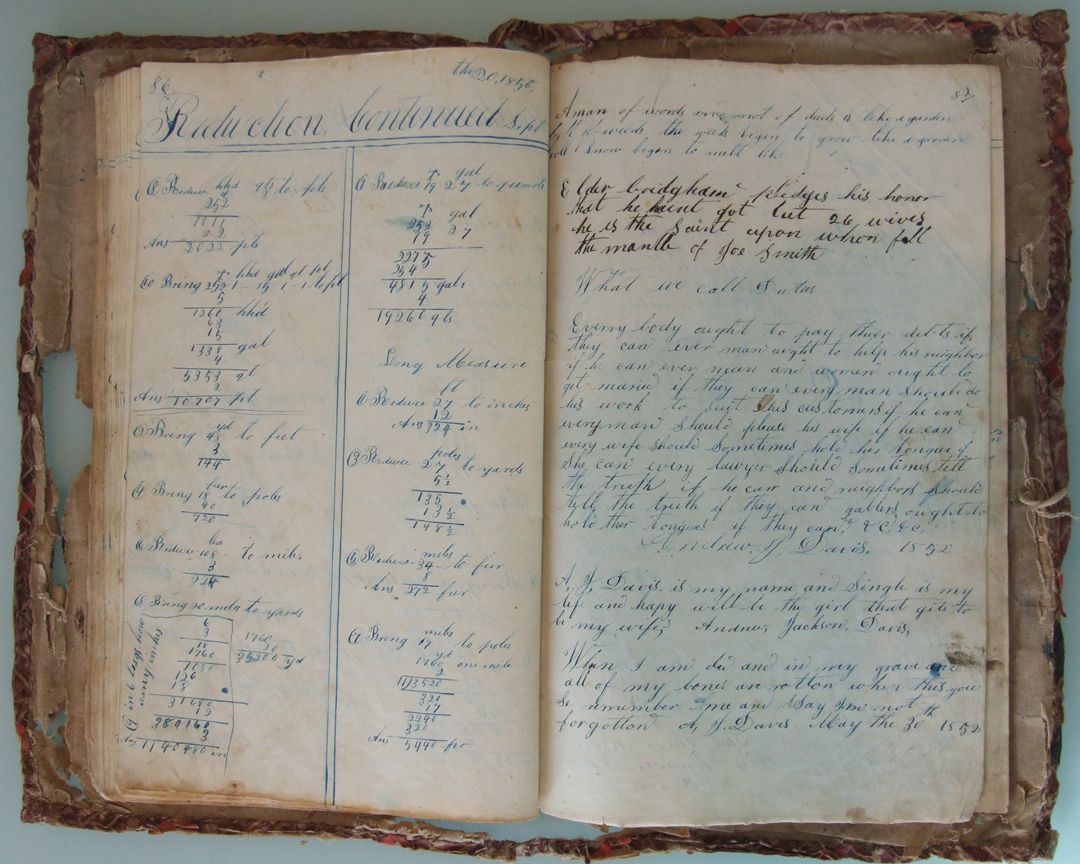 86
the 20, 1856,
Reduction, Continued Sept
Reduce hhd to pts
252
1011
Ans 2022 pts
Bring 252 1 - 15 1 - 1 to pt
hhd gal qt pt
5
1260 hhd
63
15
1338 gal
4
5353 qt
2
Ans 10707 pt
Bring 48 to feet
yd
3
144
Bring 18 to poles
fur
40
720
Reduce 108 to miles
3
Bring 20 miles to yards
6
3
18
1760
1080
126
18
31680
12
380160
3
Ans 1140480 in
1760
20
35200 yd
in 6 Leags how
many inches
Reduce 19 27 to quarts
gal
gal
252 27
19
2275
254
4815 gals
4
19260 qts
Long Measure
ft
Reduce 27 to inches
12
Ans 324 in
poles
Reduce 27 to yards
5½
135
13½
148½
miles
Reduce 34 to fur
8
Ans 272 fur
miles
Bring 17 to poles
yd
1760 one mile
2
11)3520
320
17
2240
320
Ans 5440 po
87
A man of words and not of deeds is like a garden
full of weeds, the weeds began to grow like a garden
snow began to melt like
Elder bridgham pledges his honor
that he haint got but 26 wives
he is the Saint upon whon fell
the mantle of Joe Smith
What we call
Everry body ought to pay their debts if
they can ever man ought to helps his neighbor
if he can ever man and women ought to
get maried if they can every man should do
his work to suit this customers if he can
everyman should please his wife if he can
every wife should Sometimes hold her tongue if
She can every lawyer Should Sometimes tell
the truth if he can and neighbors should
tell the truth if they can gablers ought to
hold ther tongues if they can, &c, &c.
Andrew, J, Davis, 1852
A, J, Davis is my name and Single is my
life and hapy will be the girl that gits to
be my wife, Andrew, Jackson, Davis,
When I am ded and in my grave and
all of my bones are rotton when this you
Se remember me and Say Im not
forgotton A, J. Davis May the 30th 1852